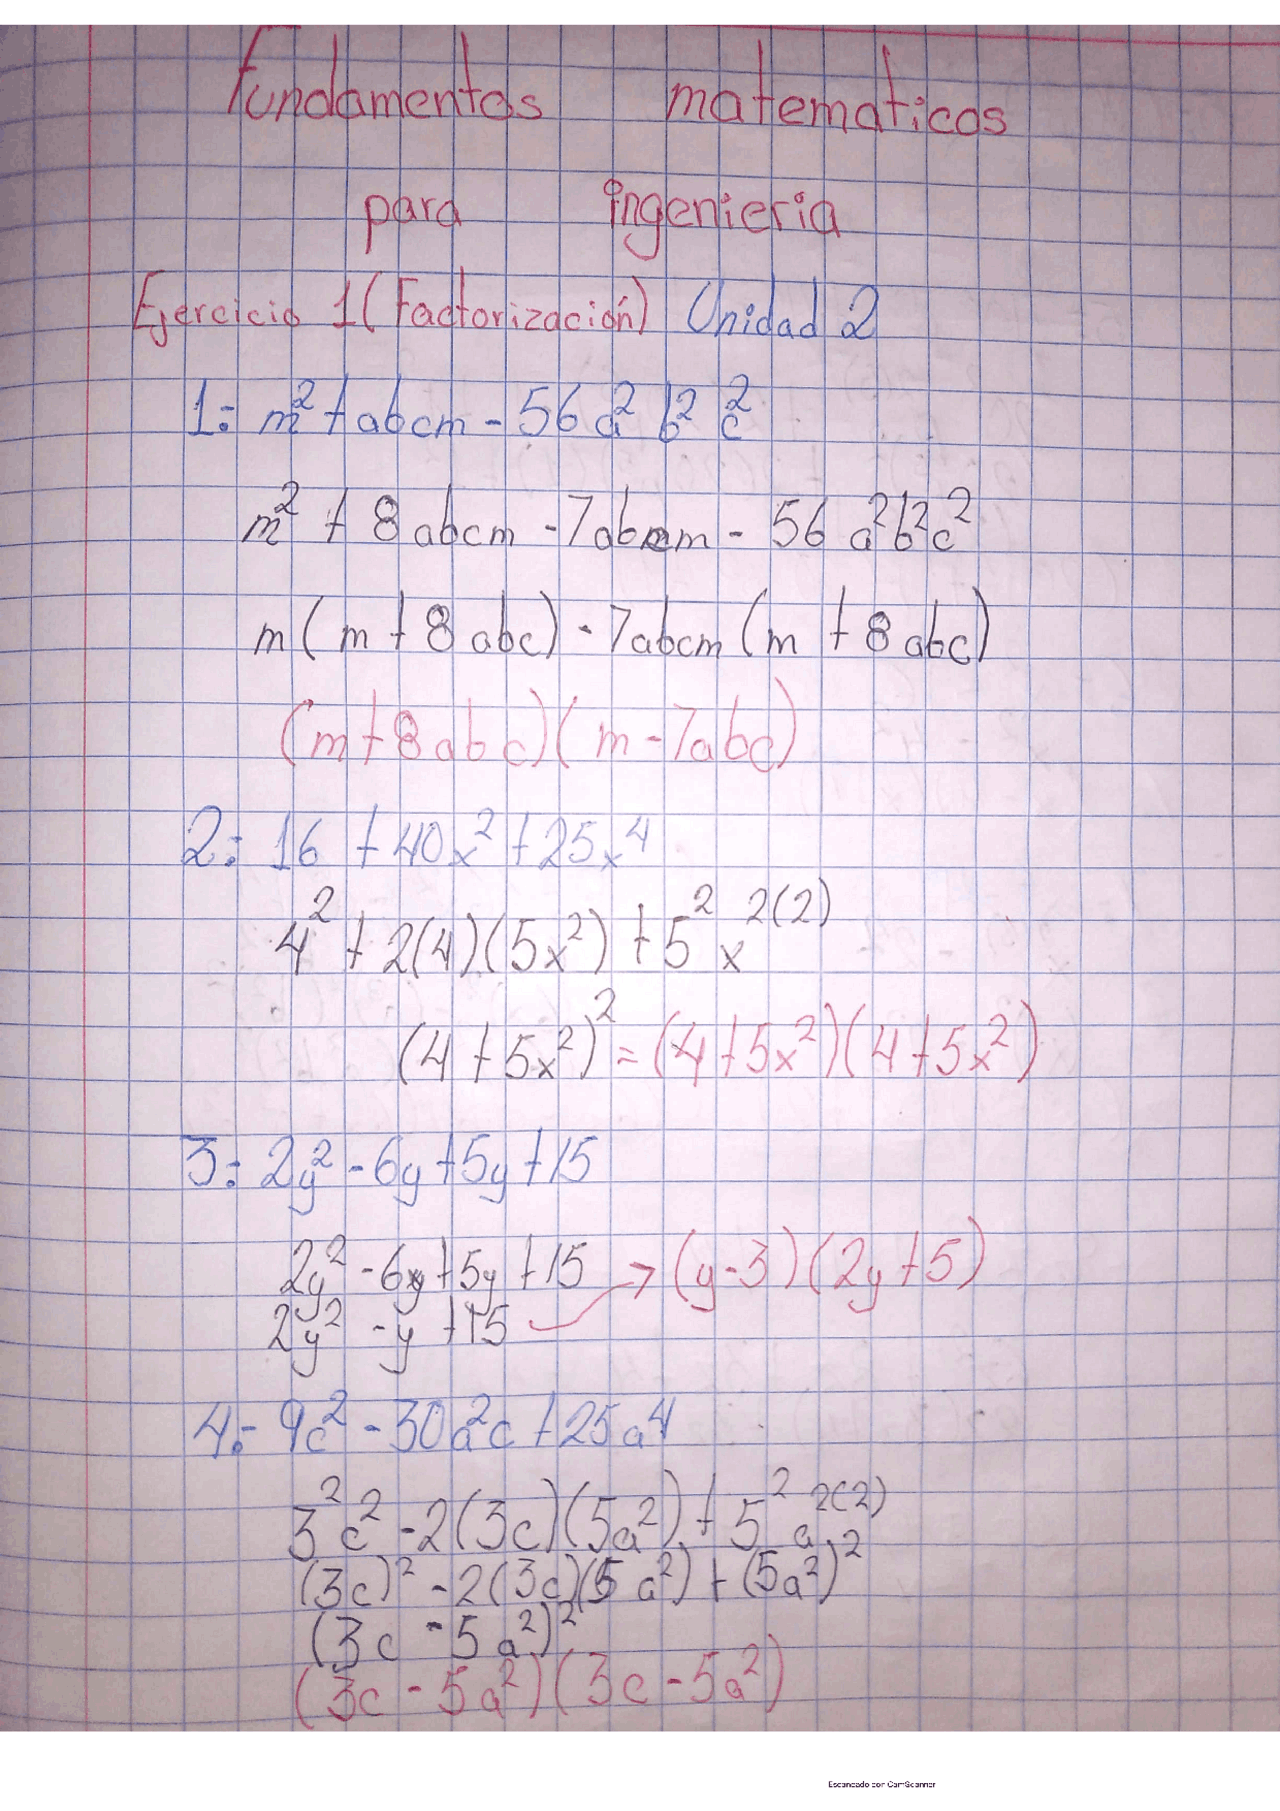 Fundamentos matematicos
para ingenieria
Ejercicio 1 (Factorización) Unidad 2
1:- m² + abcm - 56a² b² c²
m² + 8abcm - 7abcm - 56 a²b²c²
m(m + 8abc) - 7abcm(m + 8abc)
(m + 8abc)(m - 7abc)
2:- 16 + 40x² + 25x⁴
4² + 2(4)(5x²) + 5² x²⁽²⁾
(4 + 5x²)² = (4 + 5x²)(4 + 5x²)
3:- 2y² - 6y + 5y + 15
2y² - 6y + 5y + 15 → (y - 3)(2y + 5)
2y² - y + 15
4:- 9c² - 30a²c + 25a⁴
3²c² - 2(3c)(5a²) + 5² a²⁽²⁾
(3c)² - 2(3c)(5a²) + (5a²)²
(3c - 5a²)²
(3c - 5a²)(3c - 5a²)
Escaneado con CamScanner